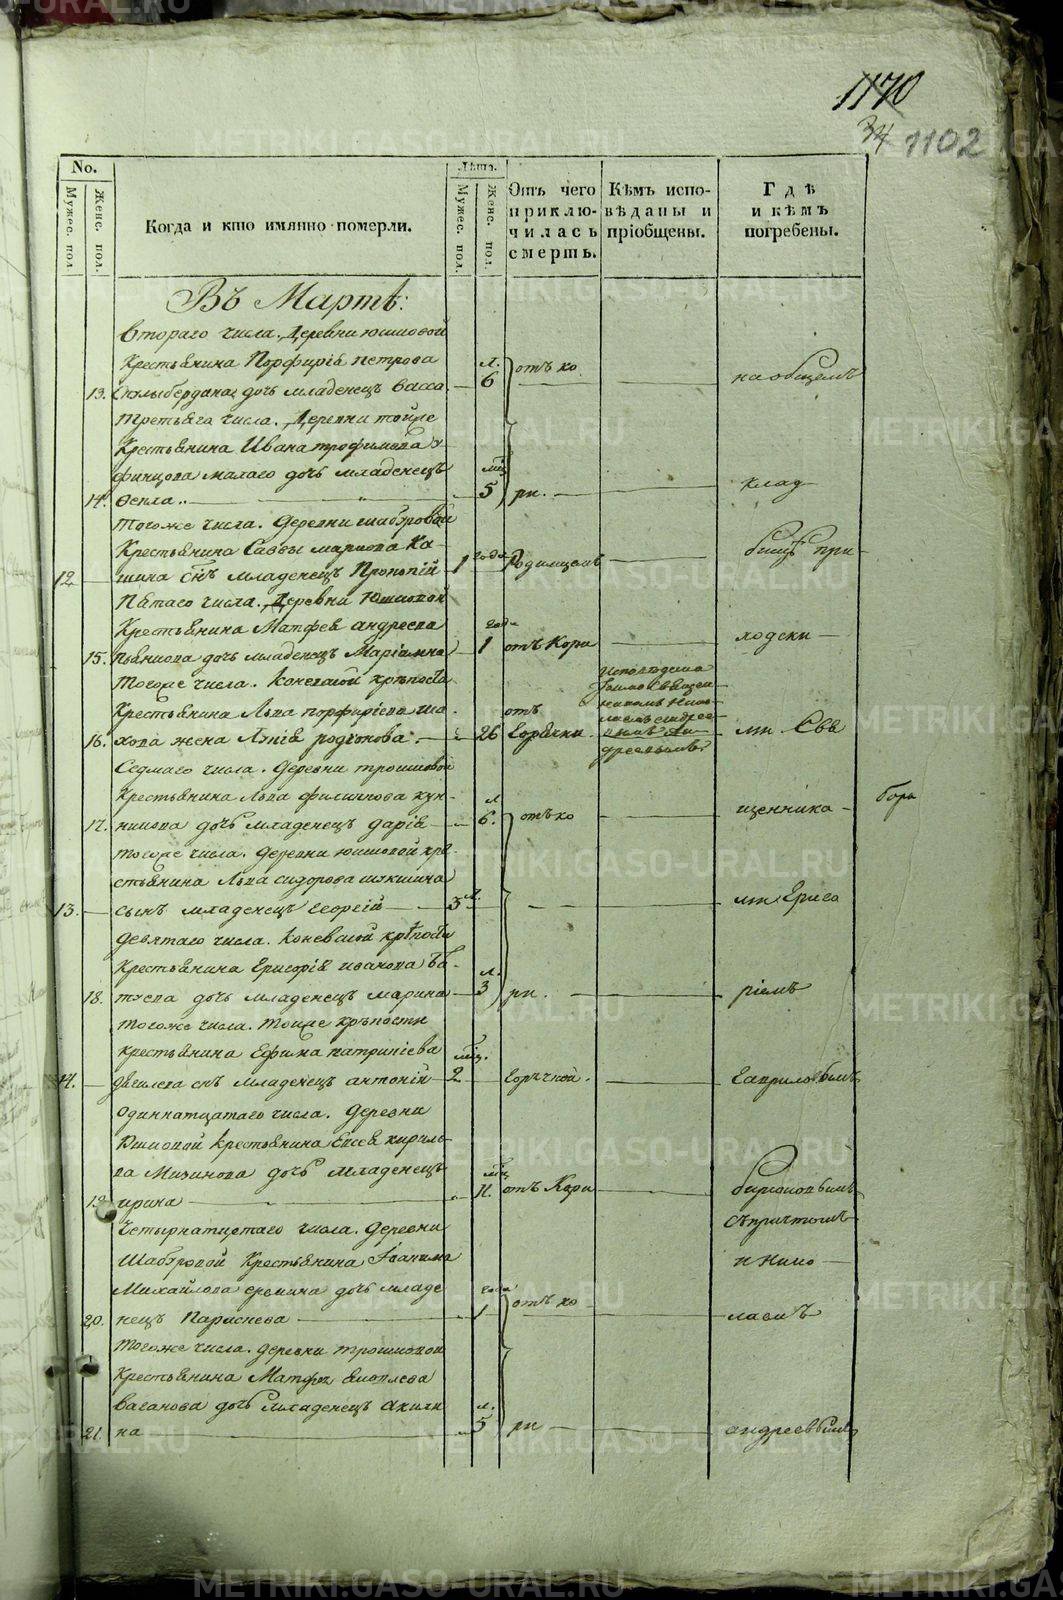 1170
34 1102
No.
Мужес. пол.
Женс. пол.
Когда и кто имянно померли.
Лѣта.
Мужес. пол.
Женс. пол.
Отъ чего приклю-
чилась смерть.
Кѣмъ испо-
вѣданы и
пріобщены.
Гдѣ
и кѣмъ
погребены.
Въ Мартѣ:
втораго числа. Деревни Юшковой
Крестьянина Порфирія петрова
13. дочь младенецъ Васса — л. 6 отъ ко — на общемъ
третьяго числа. Деревни тойже
Крестьянина Ивана трофимова
финцова малаго дочь младенецъ
14. Ѳекла — мѣц 5 ри. — клад-
тогоже числа. Деревни шабуровой
Крестьянина Саввы маркова Ка-
12 шина снъ младенецъ Прокопій — 1 года Родимцемъ — бищѣ при-
Пятаго числа. Деревни Юшковой
Крестьянина Матфея андреева
15. пьянкова дочь младенецъ Маріамна — года 1 отъ Кори — ходски-
тогоже числа. Коневской крѣпости
Крестьянина Льва порфиріева
16. жена родіонова. — 26 отъ Горячки. ми Свя
Седмаго числа. Деревни трошковой
Крестьянина Льва филипова кун-
17. никова дочь младенецъ дарія — л 6. отъ ко — щенника-
тогоже числа. Деревни юшковой кре
стьянина Льва сидорова шукшина
13. сынъ младенецъ георгій — 3 л. — ми Григо
девятаго числа. Коневской крѣпости
Крестьянина Григорія иванова
18. дочь младенецъ марина — л. 3 ри. — ріемъ
тогоже числа. Тойже крѣпости
крестьянина Ефима патрикіева
14. снъ младенецъ антоній — мѣц. 2 Горячкой. — Гавриловымъ
одиннатцатаго числа. Деревни
Юшковой Крестьянина Елисея кирил-
ва Мизинова дочь младенецъ
19. ирина — мѣц 11. отъ Кори — бирюковымъ
Съ причтомъ
четырнатцетаго числа. Деревни
Шабуровой Крестьянина Іоакима — и Нико-
Михайлова еремина дочь младе
20. нецъ Параскева — года 1 отъ ко — лаемъ
тогоже числа. деревни трошковой
Крестьянина Матфея Яковлева
ваганова дочь младенецъ Акили
21. на — л. 5 ри — андреевымъ
METRIKI.GASO-URAL.RU